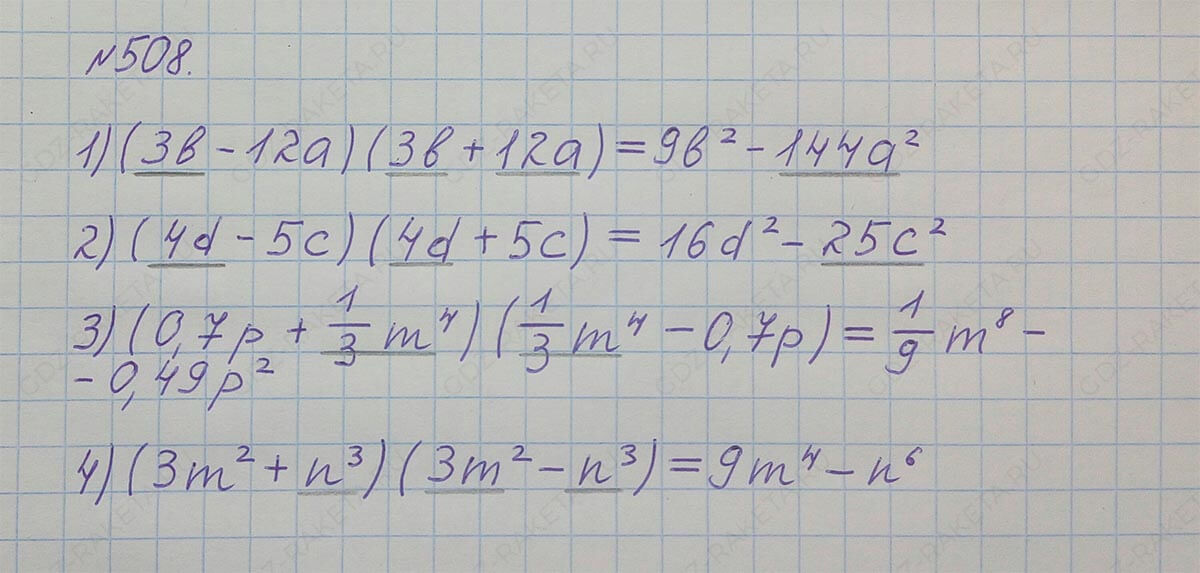 №508.
1) (3в - 12а) (3в + 12а) = 9в² - 144а²
2) (4d - 5c) (4d + 5c) = 16d² - 25c²
3) (0,7p + 1/3 m⁴) (1/3 m⁴ - 0,7p) = 1/9 m⁸ -
- 0,49p²
4) (3m² + n³) (3m² - n³) = 9m⁴ - n⁶
GDZ-RAKETA.RU